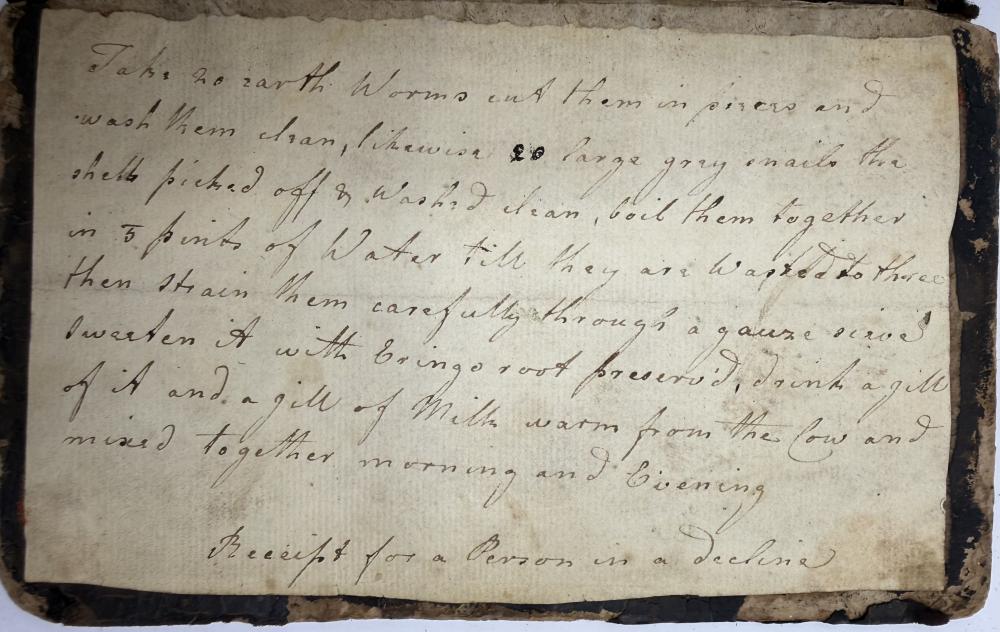 Take 20 earth Worms cut them in pieces and
wash them clean, likewise 20 large grey snails the
shells picked off & Washed clean, boil them together
in 5 pints of Water till they are Wasted to three
then strain them carefully through a gauze sieve
sweeten it with Eringo root preserv'd, drink a gill
of it and a gill of Milk warm from the Cow and
mixed together morning and Evening
Receipt for a Person in a decline